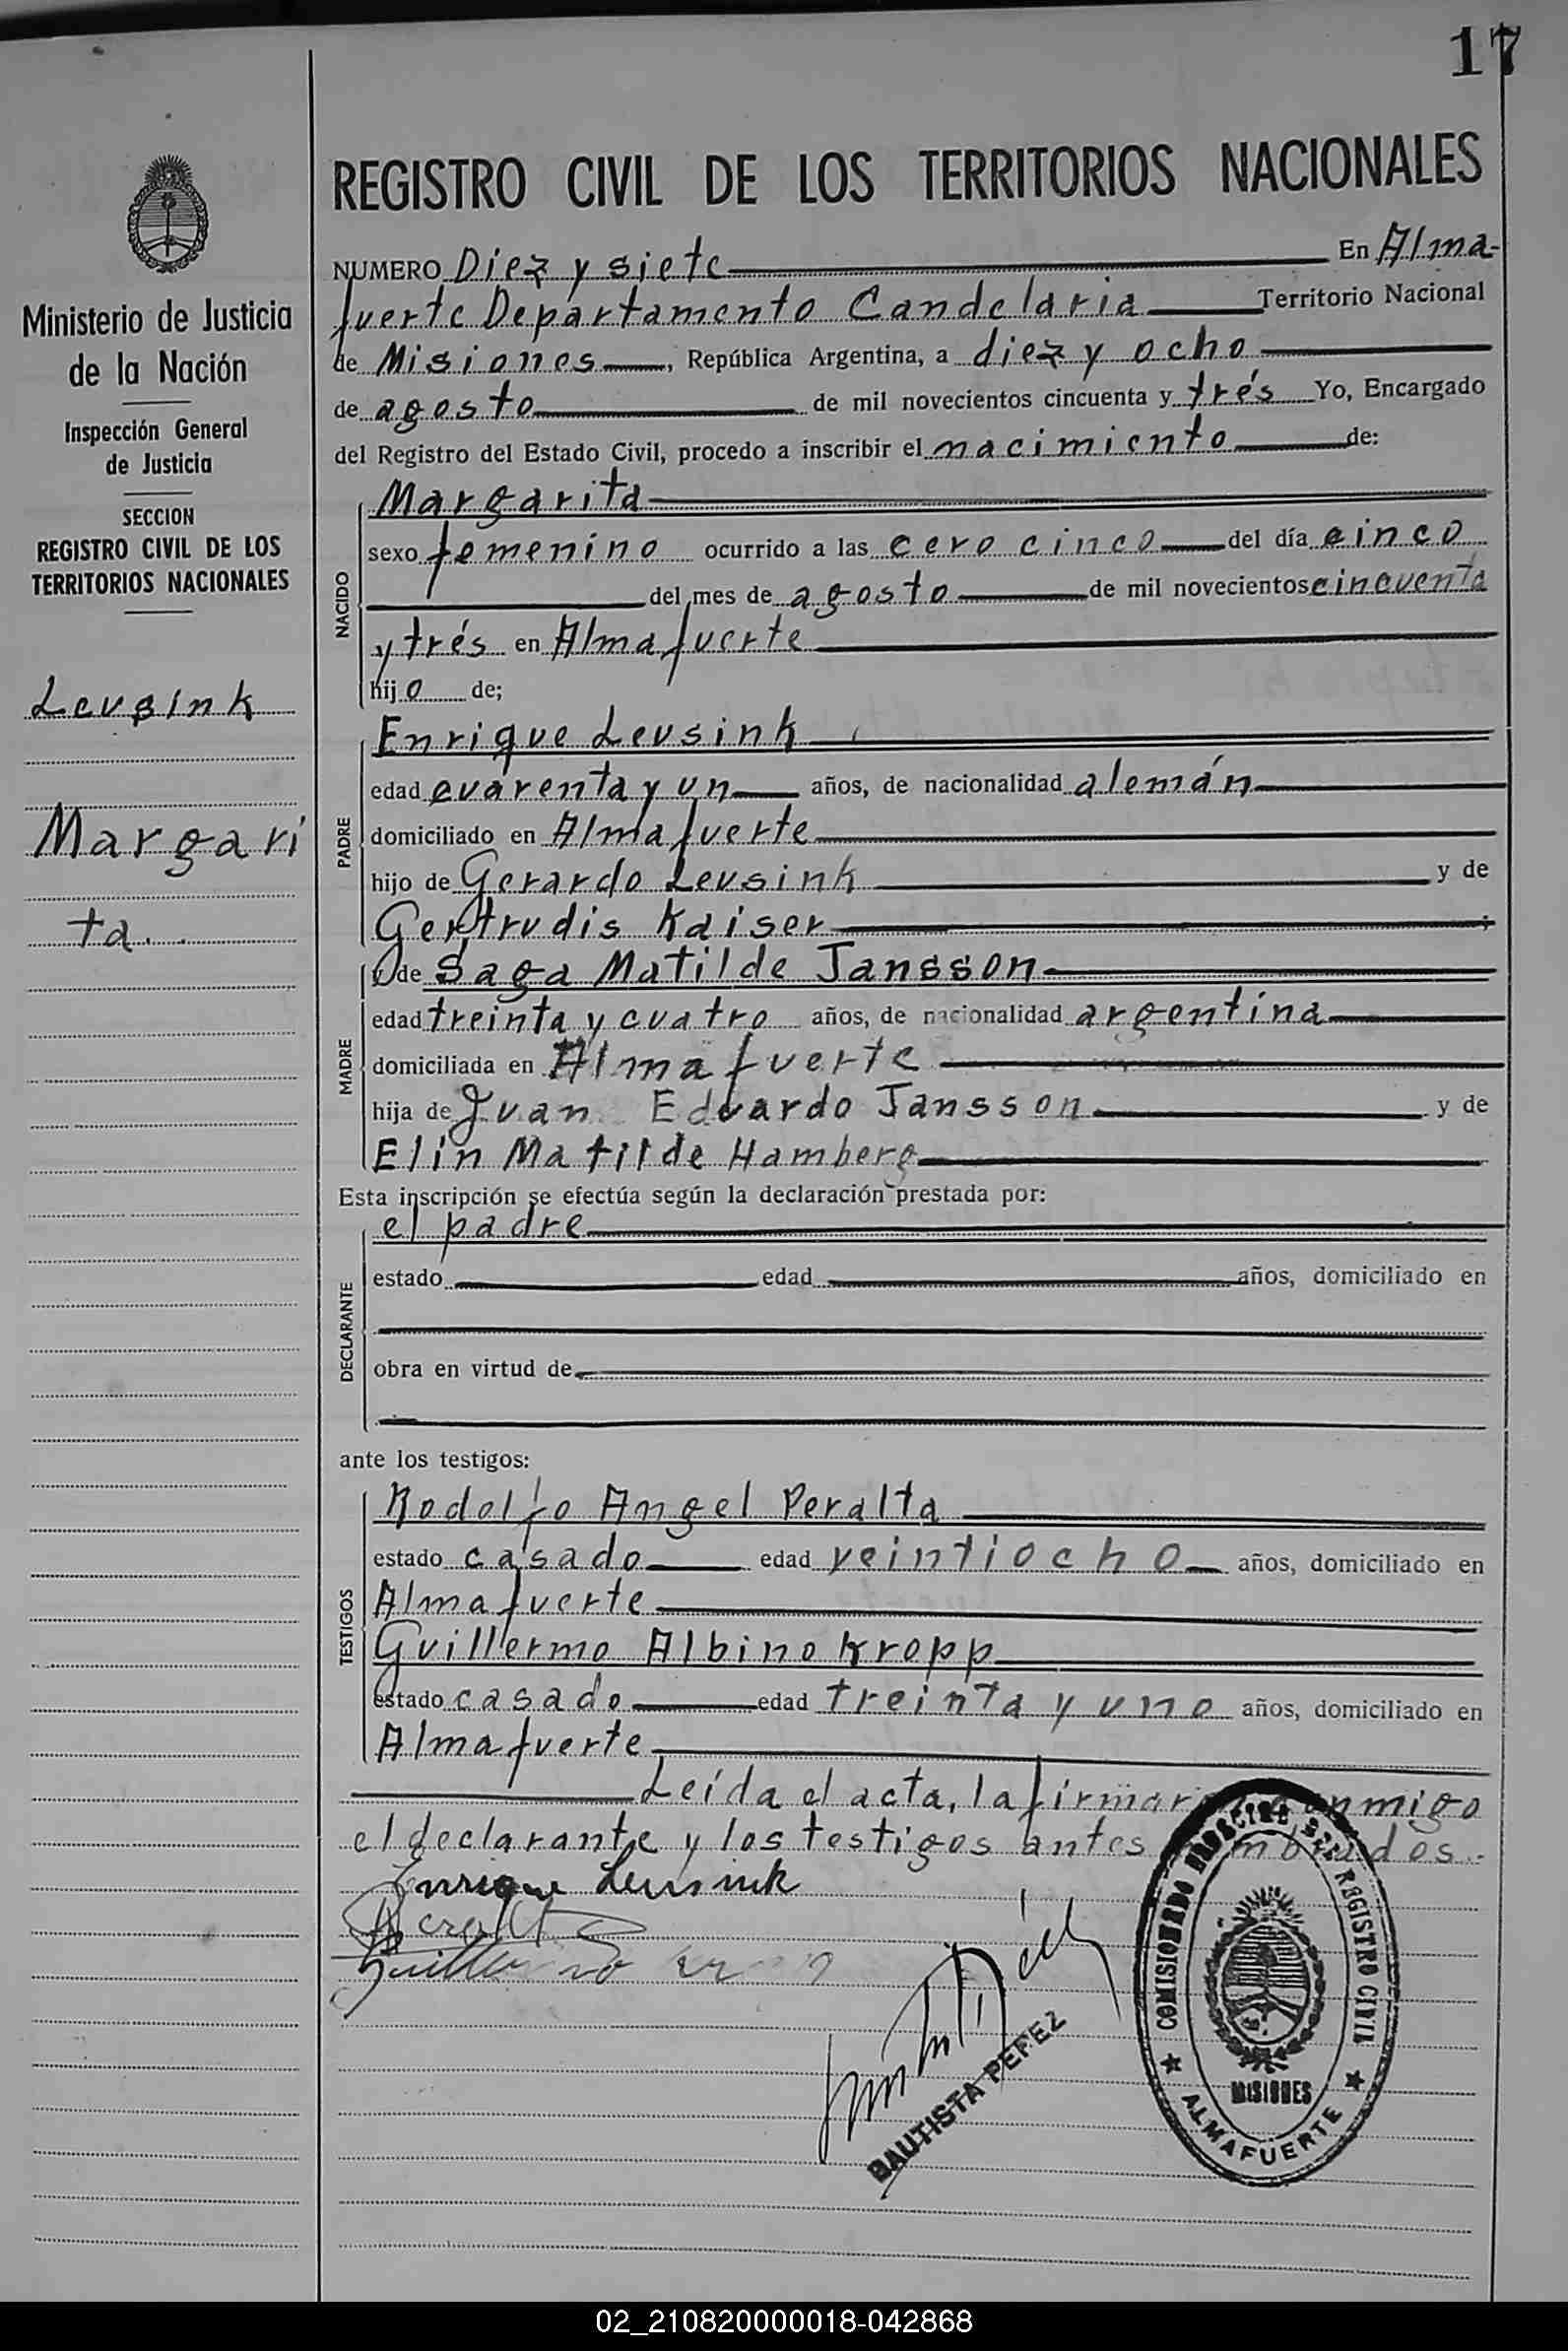 17
REGISTRO CIVIL DE LOS TERRITORIOS NACIONALES
Ministerio de Justicia
de la Nación
Inspección General
de Justicia
SECCION
REGISTRO CIVIL DE LOS
TERRITORIOS NACIONALES
Leusink
Margari
ta.
NUMERO Diez y siete En Alma-
fuerte Departamento Candelaria Territorio Nacional
de Misiones, República Argentina, a diez y ocho
de agosto de mil novecientos cincuenta y trés Yo, Encargado
del Registro del Estado Civil, procedo a inscribir el nacimiento de:
NACIDO
Margarita
sexo femenino ocurrido a las cero cinco del día cinco
del mes de agosto de mil novecientos cincuenta
y trés en Almafuerte
hijo de;
PADRE
Enrique Leusink
edad cuarenta y un años, de nacionalidad alemán
domiciliado en Almafuerte
hijo de Gerardo Leusink y de
Gertrudis Kaiser;
MADRE
y de Saga Matilde Jansson
edad treinta y cuatro años, de nacionalidad argentina
domiciliada en Almafuerte
hija de Juan Eduardo Jansson y de
Elin Matilde Hamberg
Esta inscripción se efectúa según la declaración prestada por:
DECLARANTE
el padre
estado edad años, domiciliado en
obra en virtud de
ante los testigos:
TESTIGOS
Rodolfo Angel Peralta
estado casado edad veintiocho años, domiciliado en
Almafuerte
Guillermo Albino Kropp
estado casado edad treinta y uno años, domiciliado en
Almafuerte
Leída el acta, la firmaron conmigo
el declarante y los testigos antes nombrados.-
Enrique Leusink
Peralta
Guillermo
BAUTISTA PEREZ
COMISIONADO REGISTRO CIVIL
MISIONES
ALMAFUERTE
02_210820000018-042868